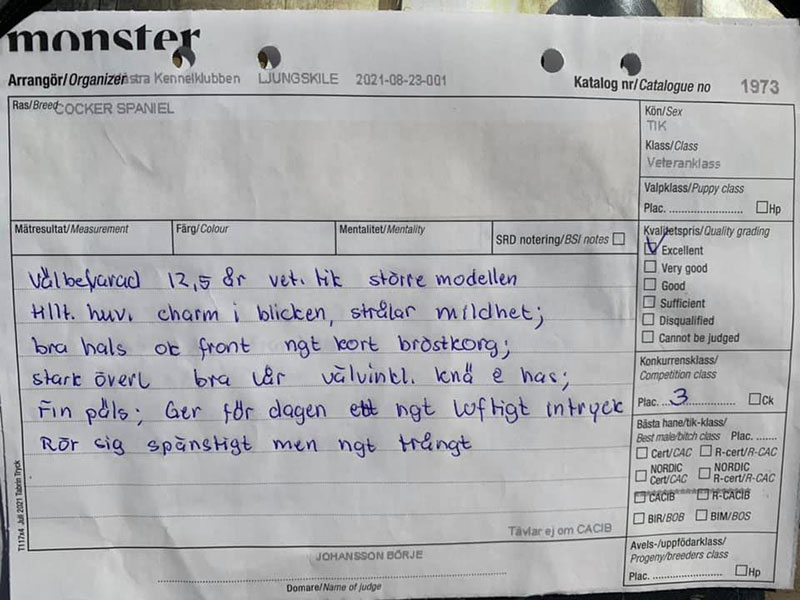 monster
Arrangör/Organizer Västra Kennelklubben LJUNGSKILE 2021-08-23-001
Katalog nr/Catalogue no 1973
Ras/Breed COCKER SPANIEL
Kön/Sex
TIK
Klass/Class
Veteranklass
Valpklass/Puppy class
Plac. ........................ Hp
Mätresultat/Measurement Färg/Colour Mentalitet/Mentality SRD notering/BSI notes
Kvalitetspris/Quality grading
Excellent
Very good
Good
Sufficient
Disqualified
Cannot be judged
Välbevarad 12,5 år vet. tik större modellen
tillt. huv. charm i blicken, strålar mildhet;
bra hals ok front ngt kort bröstkorg;
stark överl bra lår välvinkl. knä e has;
Fin päls; Ger för dagen ett ngt luftigt intryck
Rör sig spänstigt men ngt trångt
Konkurrensklass/
Competition class
Plac. 3 Ck
Bästa hane/tik-klass/
Best male/bitch class Plac. .......
Cert/CAC R-cert/R-CAC
NORDIC Cert/CAC NORDIC R-cert/R-CAC
CACIB R-CACIB
BIR/BOB BIM/BOS
Tävlar ej om CACIB
Avels-/uppfödarklass/
Progeny/breeders class
Plac. ........................ Hp
JOHANSSON BÖRJE
Domare/Name of judge
T117x4 Juli 2021 Tabrin Tryck